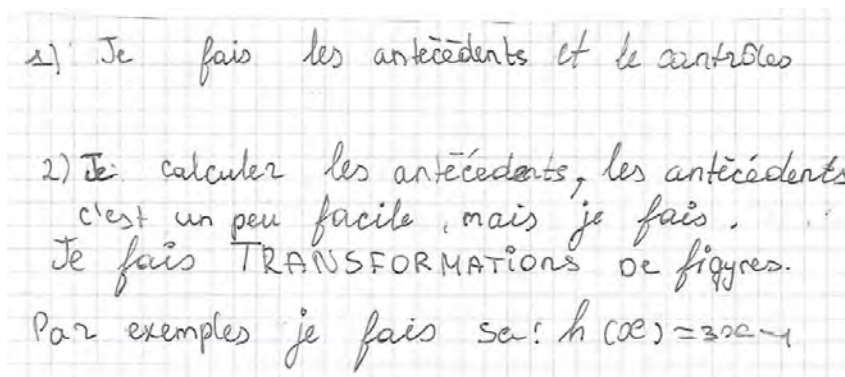 1) Je fais les antécédents et le contrôles
2) Je calculer les antécédents, les antécédents
c'est un peu facile, mais je fais.
Je fais TRANSFORMATIONS DE figyres.
Par exemples je fais sa: h(x)=3x-1